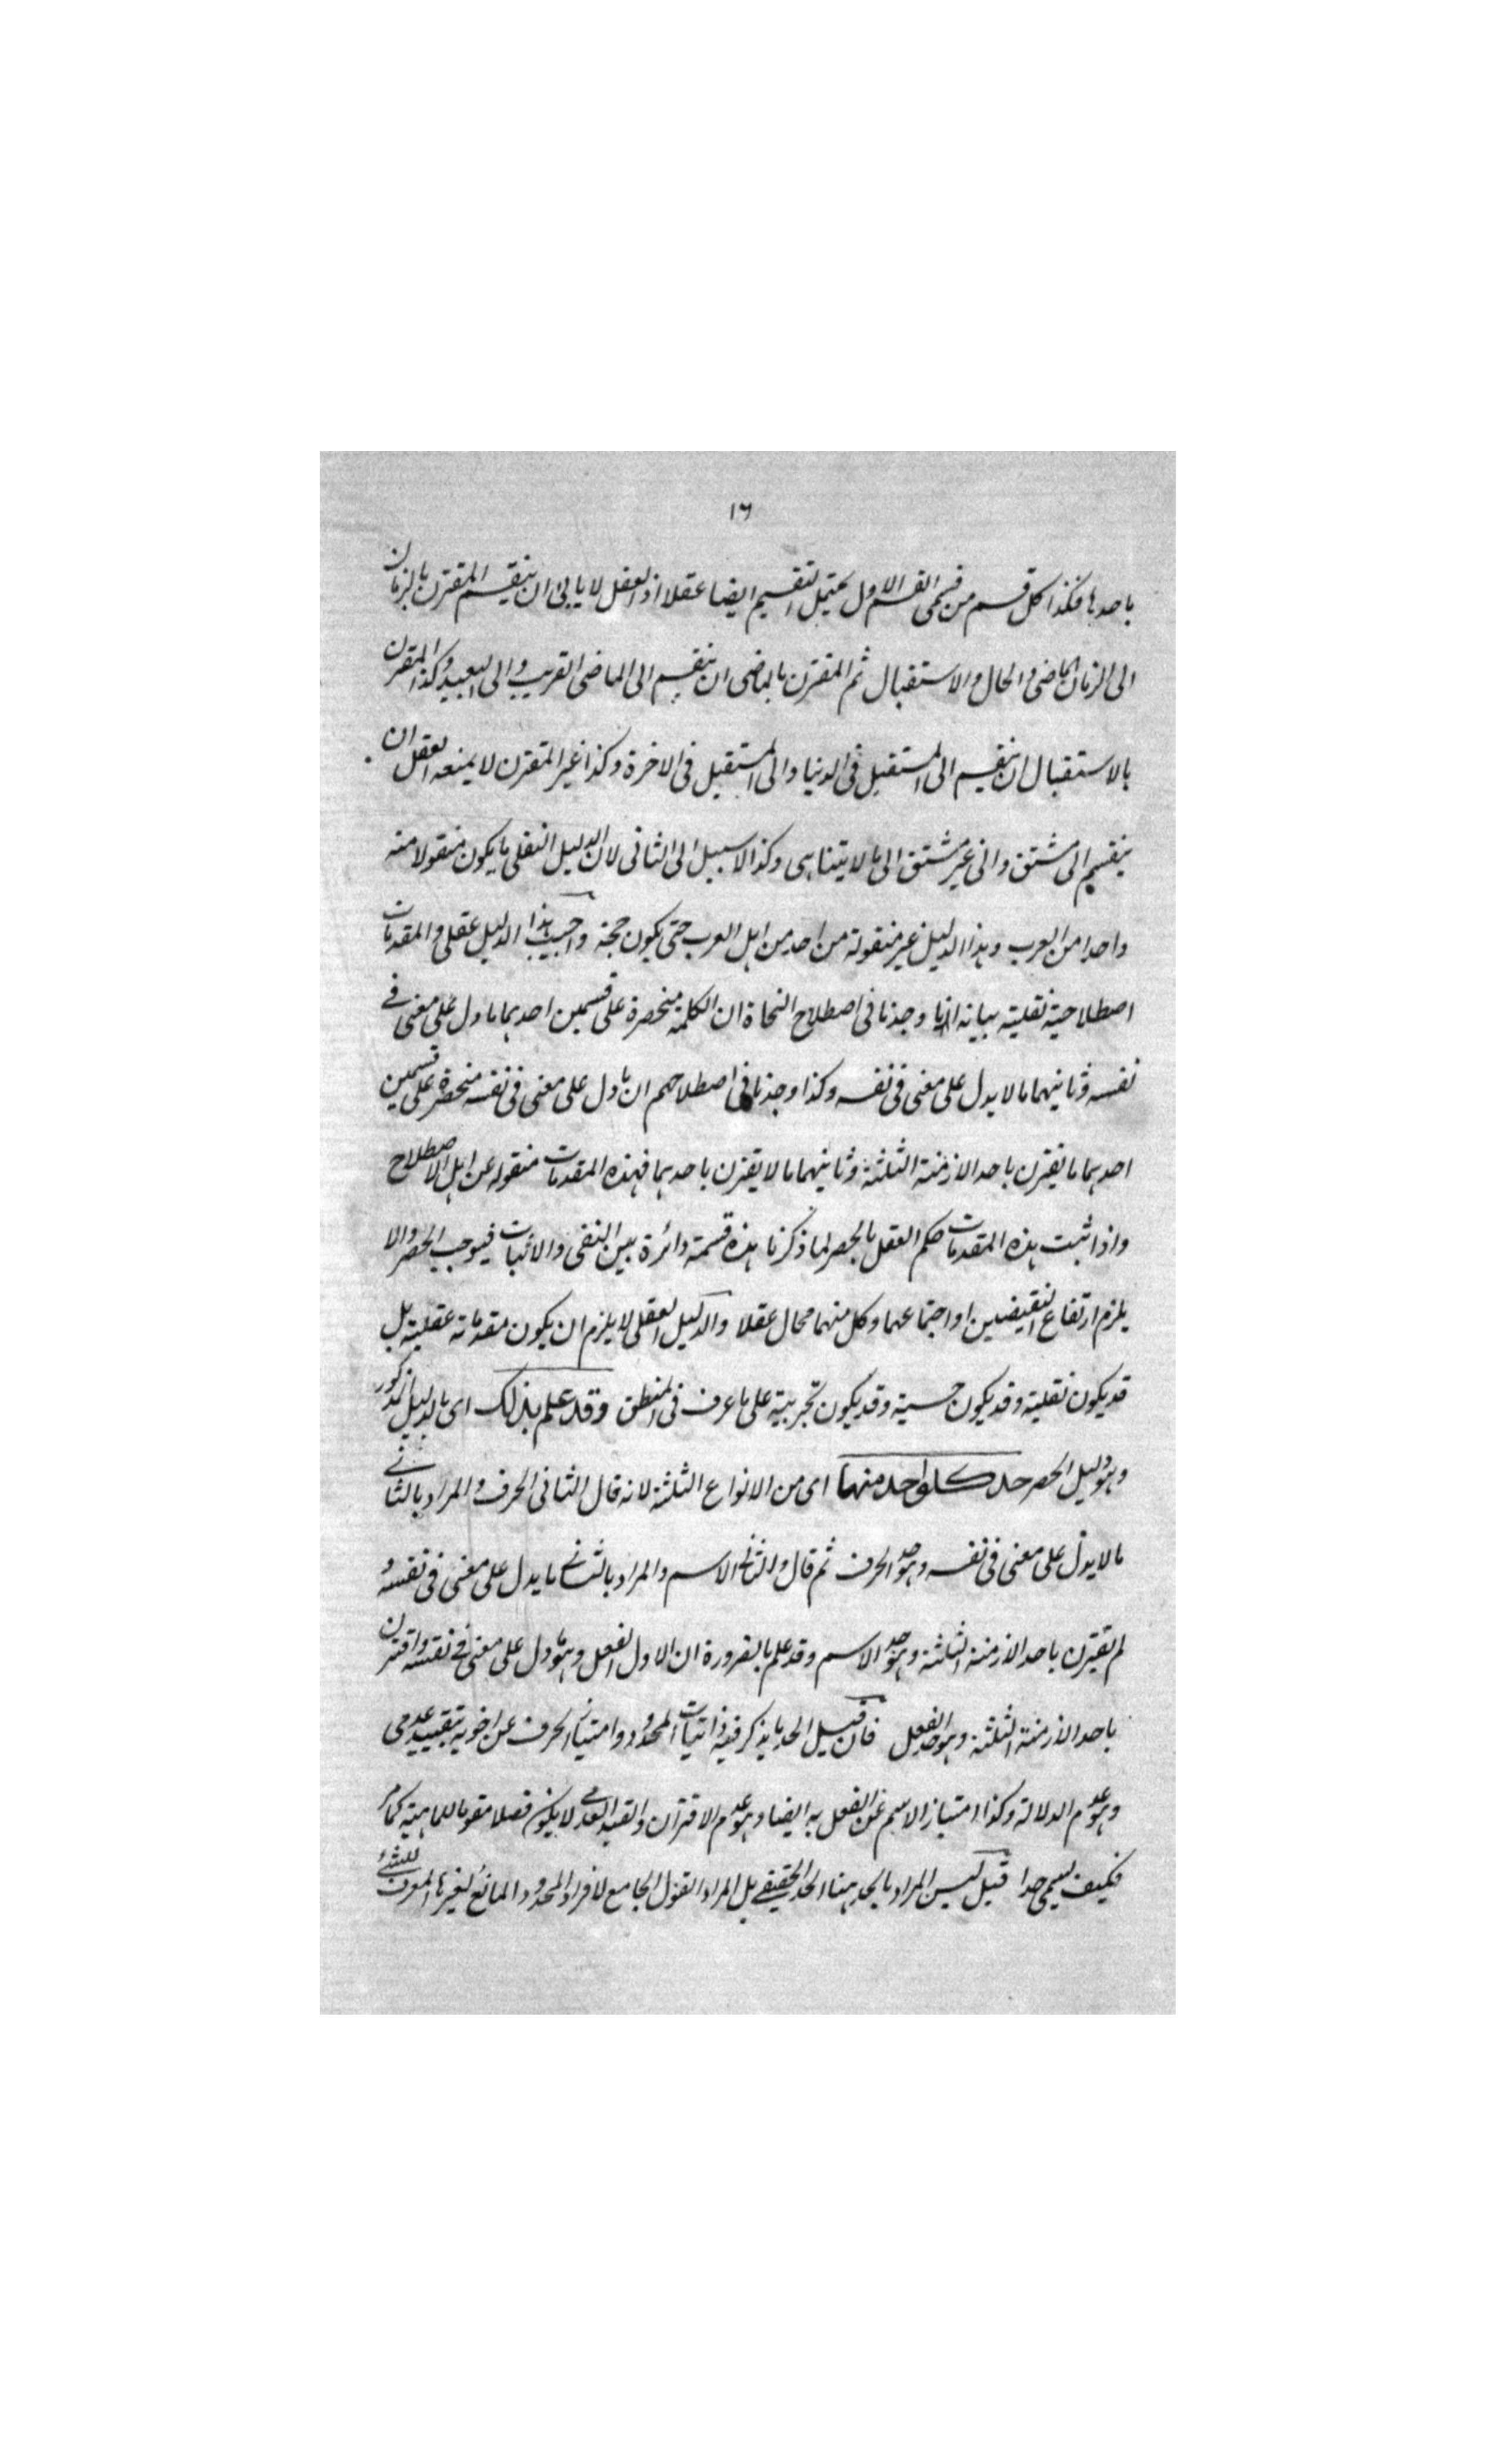 ١٦
باحدها فكذا كل قسم من قسمى القسم الاول يحتمل التقسيم ايضا عقلا اذ العقل لا يابى ان ينقسم المقترن بالزمان
الى الزمان الماضى والحال والاستقبال ثم المقترن بالماضى ان ينقسم الى الماضى القريب والى البعيد وكذا المقترن
بالاستقبال ان ينقسم الى المستقبل فى الدنيا والى المستقبل فى الاخرة وكذا غير المقترن لا يمنعه العقل ان
ينقسم الى مشتق والى غير مشتق الى ما لا يتناهى وكذا لا سبيل الى الثانى لان الدليل النقلى ما يكون منقولا منه
واحد من العرب وهذا الدليل غير منقولة من احد من اهل العرب حتى يكون حجة واجيب هذا الدليل عقلى والمقدمات
اصطلاحية نقلية بيانه انا وجدنا فى اصطلاح النحاة ان الكلمة منحصرة على قسمين احدهما ما دل على معنى فى
نفسه وثانيهما ما لا يدل على معنى فى نفسه وكذا وجدنا فى اصطلاحهم ان ما دل على معنى فى نفسه منحصرة على قسمين
احدهما ما تقترن باحد الازمنة الثلثة وثانيهما ما لا يقترن باحدهما فهذه المقدمات منقوله عن اهل الاصطلاح
واذا ثبت هذه المقدمات حكم العقل بالحصر لما ذكرنا هذه قسمة دائرة بين النفى والاثبات فيوجب الحصر والا
يلزم ارتفاع النقيضين او اجتماعهما وكل منهما محال عقلا والدليل العقلى لا يلزم ان يكون مقدماته عقلية بل
قد يكون نقلية وقد يكون حسية وقد يكون تجربية على ما عرف فى المنطق وقد علم بذلك اى بالدليل المذكور
وهو دليل الحصر حد كل واحد منها اى من الانواع الثلثة لانه قال الثانى الحرف والمراد بالثانى
ما لا يدل على معنى فى نفسه وهو حد الحرف ثم قال والثانى الاسم والمراد بالثانى ما يدل على معنى فى نفسه و
لم يقترن باحد الازمنة الثلثة وهو حد الاسم وقد علم بالضرورة ان الاول الفعل وهو ما دل على معنى فى نفسه واقترن
باحد الازمنة الثلثة وهو حد الفعل فان قيل الحد ما يذكر فيه ذاتيات المحدود وامتياز الحرف عن اخويه بقييد عدمى
وهو عدم الدلالة وكذا امتياز الاسم عن الفعل به ايضا وهو عدم الاقتران والقيد العدمى لا يكون فصلا مقوما للماهية كما مر
فكيف يسمى حدا قيل ليس المراد بالحد ههنا الحد الحقيقى بل المراد القول الجامع لافراد المحدود المانع لغيرها المعرف للشئ